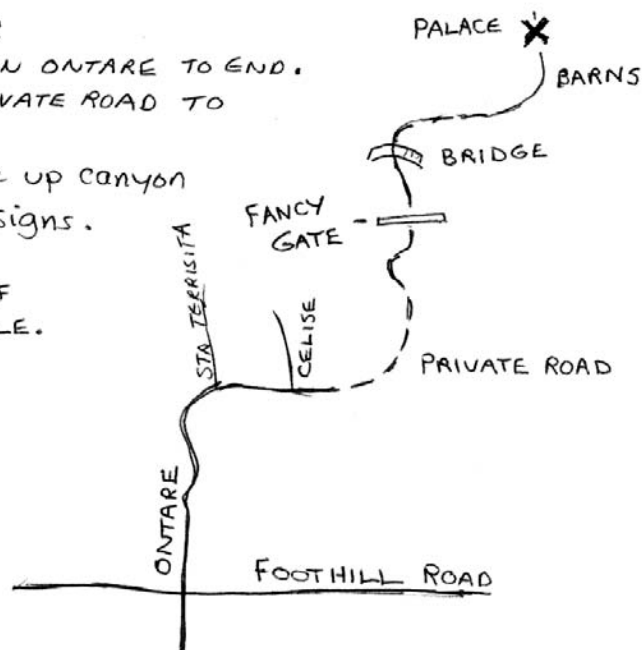 N ONTARE TO END.
VATE ROAD TO
UP Canyon
signs.
LE.
PALACE
BARNS
BRIDGE
FANCY
GATE
STA TERRISITA
CELISE
PRIVATE ROAD
ONTARE
FOOTHILL ROAD